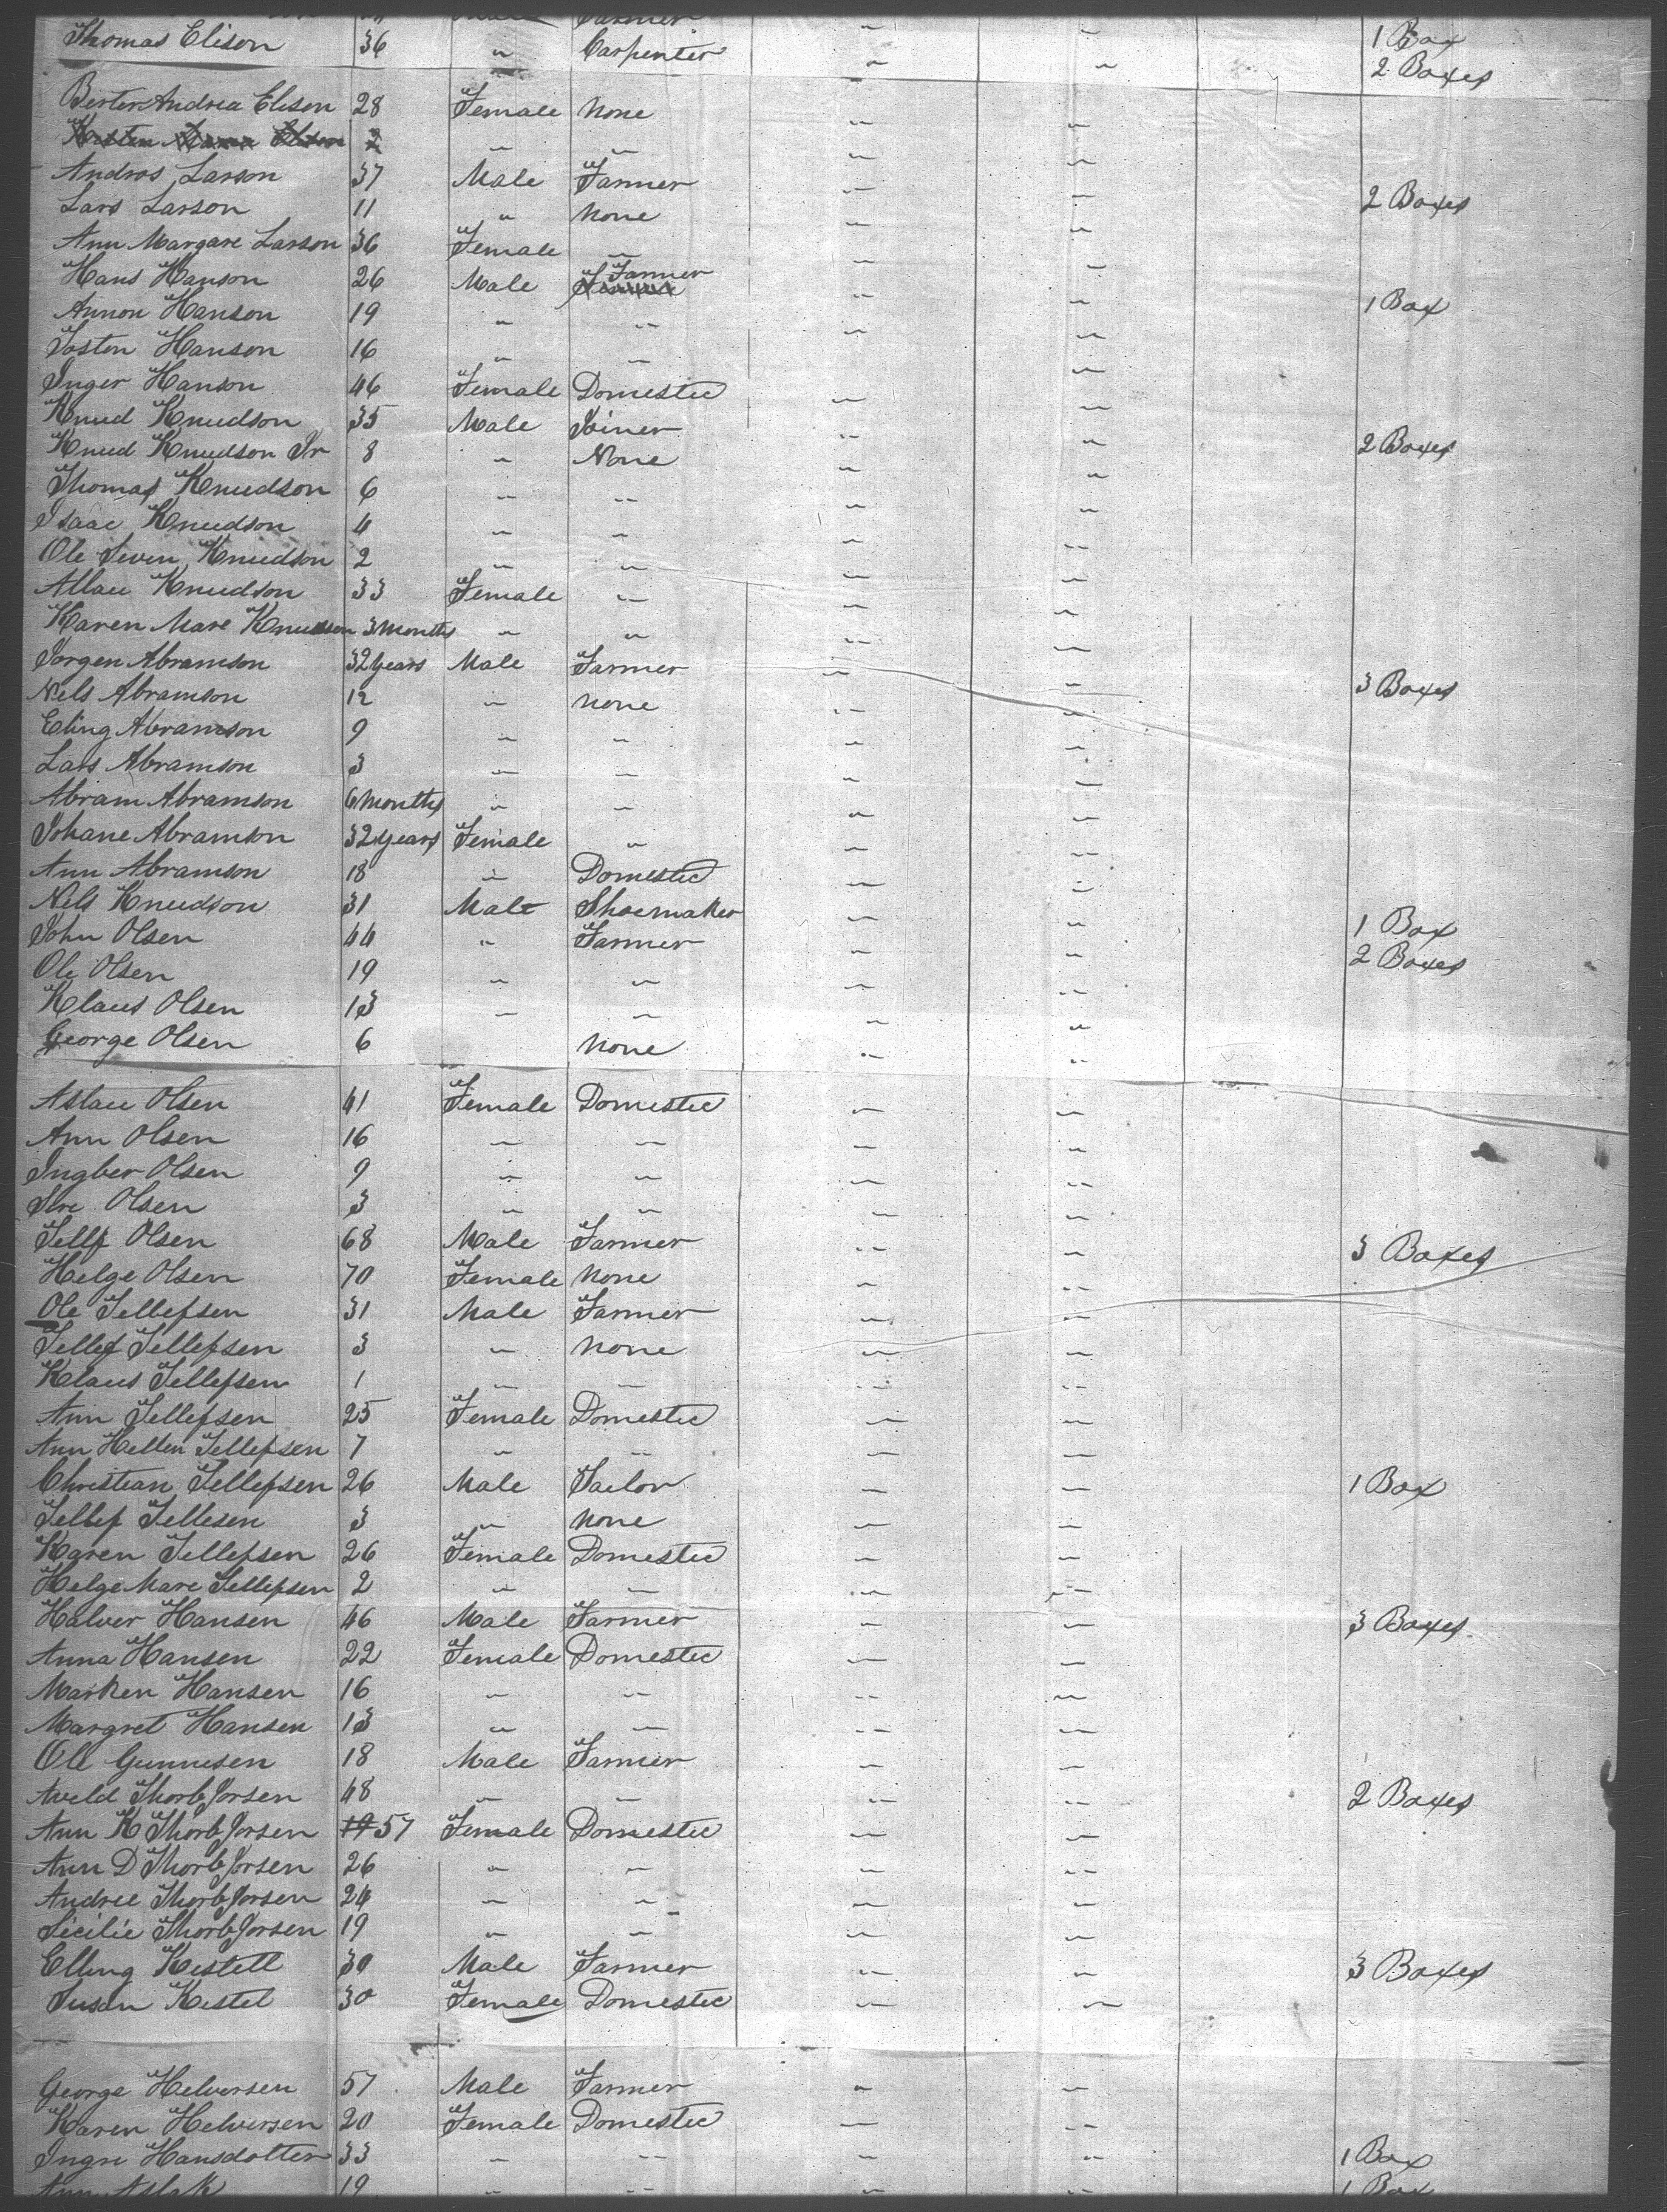 Farmer
Thomas Elison 36 " Carpenter " " 1 Box
2 Boxes
Berter Andrea Elison 28 Female None " "
2 " " " "
Andros Larson 37 Male Farmer " " 2 Boxes
Lars Larson 11 " None " "
Ann Margare Larson 36 Female " " "
Hans Hanson 26 Male Farmer " " 1 Box
Annon Hanson 19 " " " "
Josten Hanson 16 " " " "
Inger Hanson 46 Female Domestic " "
Knud Knudson 35 Male Joiner " " 2 Boxes
Knud Knudson Jr 8 " None " "
Thomas Knudson 6 " " " "
Isaac Knudson 4 " " " "
Ole Seven Knudson 2 " " " "
Allau Knudson 33 Female " " "
Karen Mare Knudson 3 Months " " " "
Jorgen Abramson 32 years Male Farmer " " 3 Boxes
Nels Abramson 12 " None " "
Eling Abramson 9 " " " "
Lars Abramson 3 " " " "
Abram Abramson 6 Months " " " "
Johane Abramson 32 years Female " " "
Ann Abramson 18 " Domestic " "
Nels Knudson 31 Male Shoemaker " " 1 Box
John Olsen 44 " Farmer " " 2 Boxes
Ole Olsen 19 " " " "
Klaus Olsen 13 " " " "
George Olsen 6 None " "
Aslau Olsen 41 Female Domestic " "
Ann Olsen 16 " " " "
Ingber Olsen 9 " " " "
Olsen 3 " " " "
Tellf Olsen 68 Male Farmer " " 3 Boxes
Helge Olsen 70 Female None " "
Ole Tellefsen 31 Male Farmer " "
Tellef Tellefsen 3 " None " "
Klaus Tellefsen 1 " " " "
Ann Tellefsen 25 Female Domestic " "
Ann Hellen Tellefsen 7 " " " "
Christian Tellefsen 26 Male Sailor " " 1 Box
Tellef Tellesen 3 " None " "
Karen Tellefsen 26 Female Domestic " "
Helge Mare Tellefsen 2 " " " "
Halver Hansen 46 Male Farmer " " 3 Boxes
Anna Hansen 22 Female Domestic " "
Marken Hansen 16 " " " "
Margret Hansen 13 " " " "
Ole Gunnesen 18 Male Farmer " "
Aveld ThorbJorsen 48 " " " " 2 Boxes
Ann K ThorbJorsen 19 57 Female Domestic " "
Ann D ThorbJorsen 26 " " " "
Andree ThorbJorsen 24 " " " "
Sicilie ThorbJorsen 19 " " " "
Elling Kestell 30 Male Farmer " " 3 Boxes
Susan Kestel 30 Female Domestic " "
George Helversen 57 Male Farmer " "
Karen Helversen 20 Female Domestic " "
Ingre Hansdotter 33 " " " 1 Box
Ann Aslak 19 " " " 1 Box